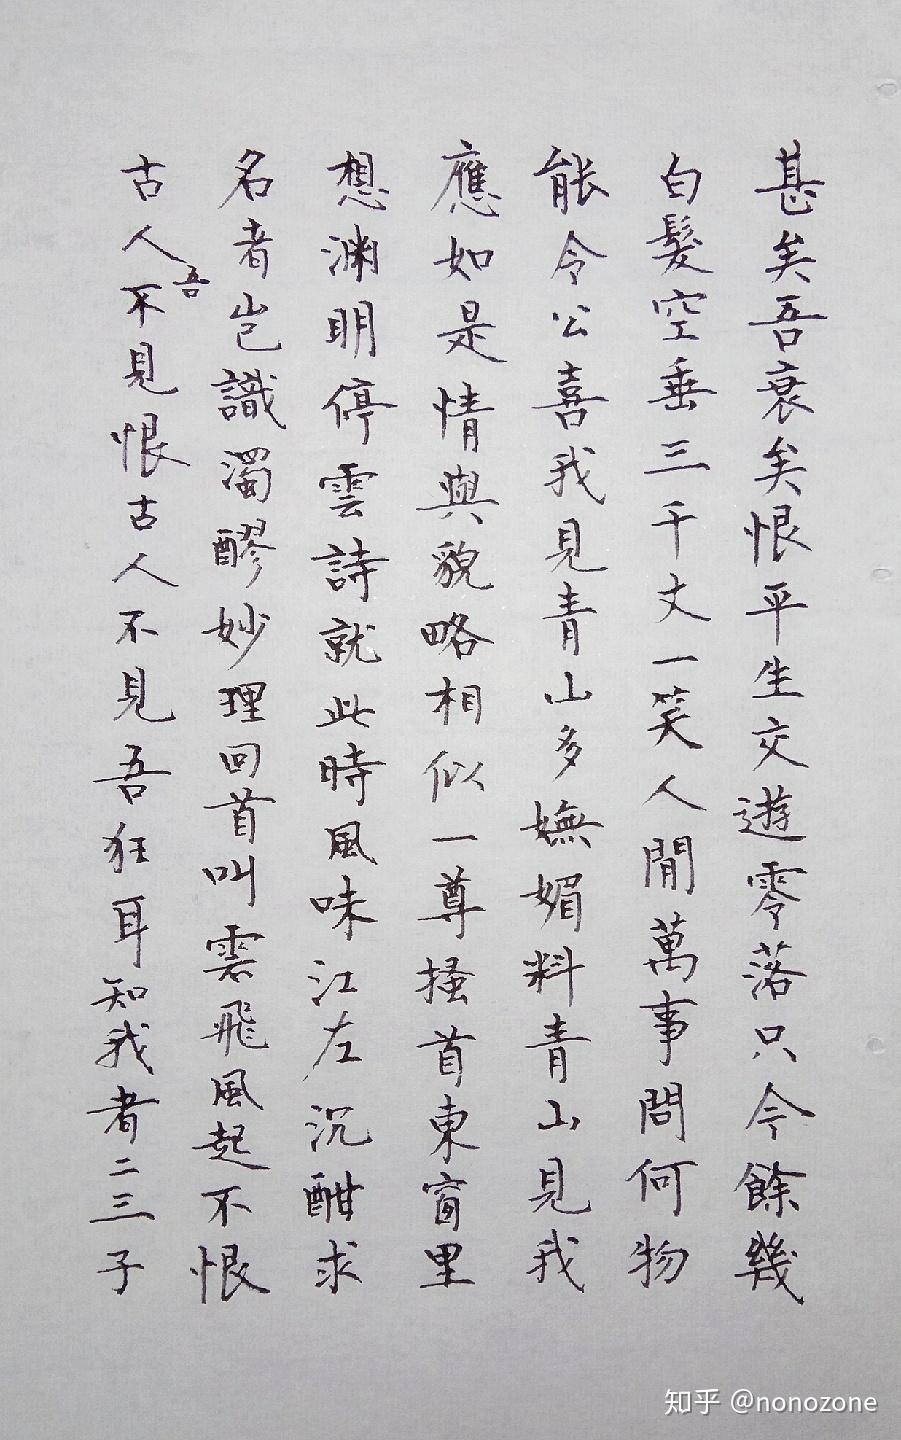 甚矣吾衰矣恨平生交遊零落只今餘幾
白髮空垂三千丈一笑人閒萬事問何物
能令公喜我見青山多嫵媚料青山見我
應如是情與貌略相似一尊搔首東窗里
想淵明停雲詩就此時風味江左沉酣求
名者豈識濁醪妙理回首叫雲飛風起不恨
古人吾不見恨古人不見吾狂耳知我者二三子
知乎 @nonozone